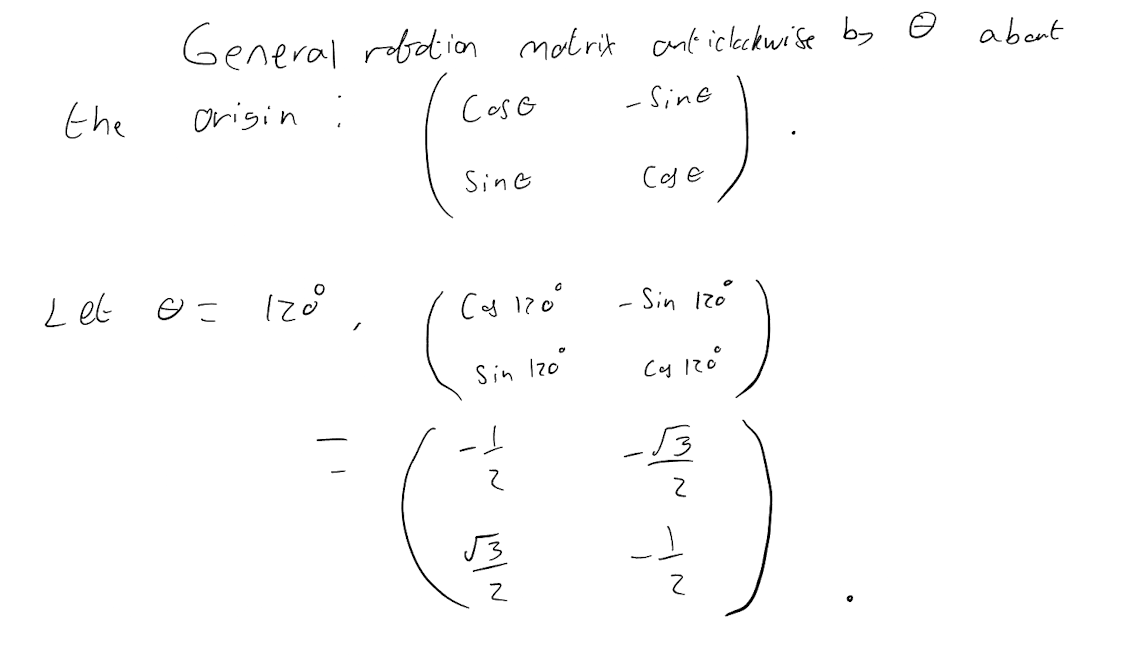 General rotation matrix anticlockwise by θ about
the origin : ( Cosθ -Sinθ
Sinθ Cosθ ) .
Let θ = 120°, ( Cos 120° - Sin 120°
Sin 120° Cos 120° )
= ( -1/2 -√3/2
√3/2 -1/2 ) .